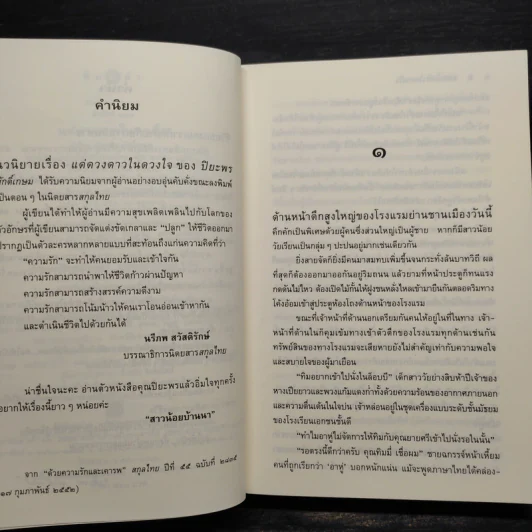 คำนิยม
นวนิยายเรื่อง แต่ดวงดาวในดวงใจ ของ ปิยะพร
ศักดิ์เกษม ได้รับความนิยมจากผู้อ่านอย่างอบอุ่นคับคั่งขณะลงพิมพ์
เป็นตอน ๆ ในนิตยสารสกุลไทย
ผู้เขียนได้ทำให้ผู้อ่านมีความสุขเพลิดเพลินไปกับโลกของ
ตัวอักษรที่ผู้เขียนสามารถจัดแต่งขัดเกลาและ "ปลูก" ให้ชีวิตออกมา
ปรากฏเป็นตัวละครหลากหลายแบบที่สะท้อนถึงแก่นความคิดที่ว่า
"ความรัก" จะทำให้คนยอมรับและเข้าใจกัน
ความรักสามารถนำพาให้ชีวิตก้าวผ่านปัญหา
ความรักสามารถสร้างสรรค์ความดีงาม
ความรักสามารถโน้มน้าวให้คนเราโอนอ่อนเข้าหากัน
และดำเนินชีวิตไปด้วยกันได้
นรีภพ สวัสดิรักษ์
บรรณาธิการนิตยสารสกุลไทย
น่าชื่นใจนะคะ อ่านตัวหนังสือคุณปิยะพรแล้วอิ่มใจทุกครั้ง
อยากให้เรื่องนี้ยาว ๆ หน่อยค่ะ
"สาวน้อยบ้านนา"
จาก "ด้วยความรักและเคารพ" สกุลไทย ปีที่ ๕๕ ฉบับที่
๑๗ กุมภาพันธ์ ๒๕๕๒)
๑
ด้านหน้าตึกสูงใหญ่ของโรงแรมย่านชานเมืองวันนี้
คึกคักเป็นพิเศษด้วยผู้คนซึ่งส่วนใหญ่เป็นผู้ชาย หากก็มีสาวน้อย
วัยเรียนเป็นกลุ่ม ๆ ปะปนอยู่มากเช่นเดียวกัน
ยิ่งสายจัดก็ยิ่งมีคนมาสมทบเพิ่มขึ้นจนกระทั่งล้นบาทวิถี ผล
ที่สุดก็ต้องออกมาออกันอยู่ริมถนน แล้วยามที่หน้าประตูก็ทนแรง
กดดันไม่ไหว ต้องเปิดไม้กั้นให้ฝูงชนหลั่งไหลเข้ามายืนกันตลอดริมทาง
โค้งอ้อมเข้าสู่ประตูห้องโถงด้านหน้าของโรงแรม
ขณะที่เจ้าหน้าที่ด้านนอกเตรียมกันคนให้อยู่ในที่ในทาง เจ้า-
หน้าที่ด้านในก็คุมเข้มทางเข้าตัวตึกของโรงแรมทุกด้านเช่นกัน
ทรัพย์สินของทางโรงแรมจะเสียหายยังไม่สำคัญเท่ากับความพอใจ
และสบายใจของผู้มาเยือน
"ทิมอยากเข้าไปนั่งในล็อบบี้" เด็กสาววัยย่างสิบห้าปีเจ้าของ
หางเปียยาวและพวงแก้มแดงก่ำทั้งด้วยความร้อนของอากาศภายนอก
และความตื่นเต้นในใจบ่น เจ้าหล่อนอยู่ในชุดเครื่องแบบระดับชั้นมัธยม
ของโรงเรียนเอกชนชั้นดี
"ทำไมอาฟูไม่จัดการให้ทิมกับคุณยายศรีเข้าไปนั่งรอในนั้น"
"รอตรงนี้ดีกว่าครับ คุณทิมมี่ เชื่อผม" ชายฉกรรจ์หน้าเหี้ยม
คนที่ถูกเรียกว่า "อาฟู" บอกหนักแน่น แม้จะพูดภาษาไทยได้คล่อง-